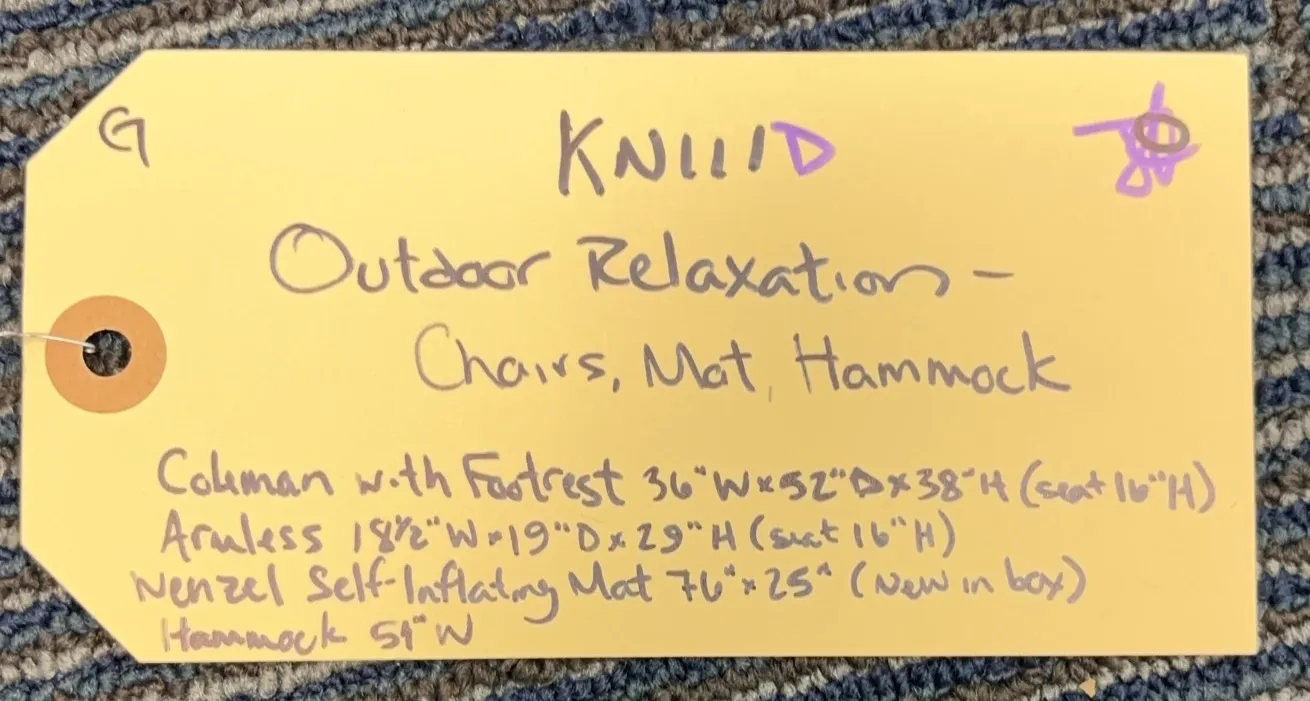 G
KN111D
Outdoor Relaxation -
Chairs, Mat, Hammock
Coleman with Footrest 36"W x 52"D x 38"H (seat 16"H)
Armless 18½"W x 19"D x 29"H (seat 16"H)
Wenzel Self-Inflating Mat 76" x 25" (New in box)
Hammock 59"W